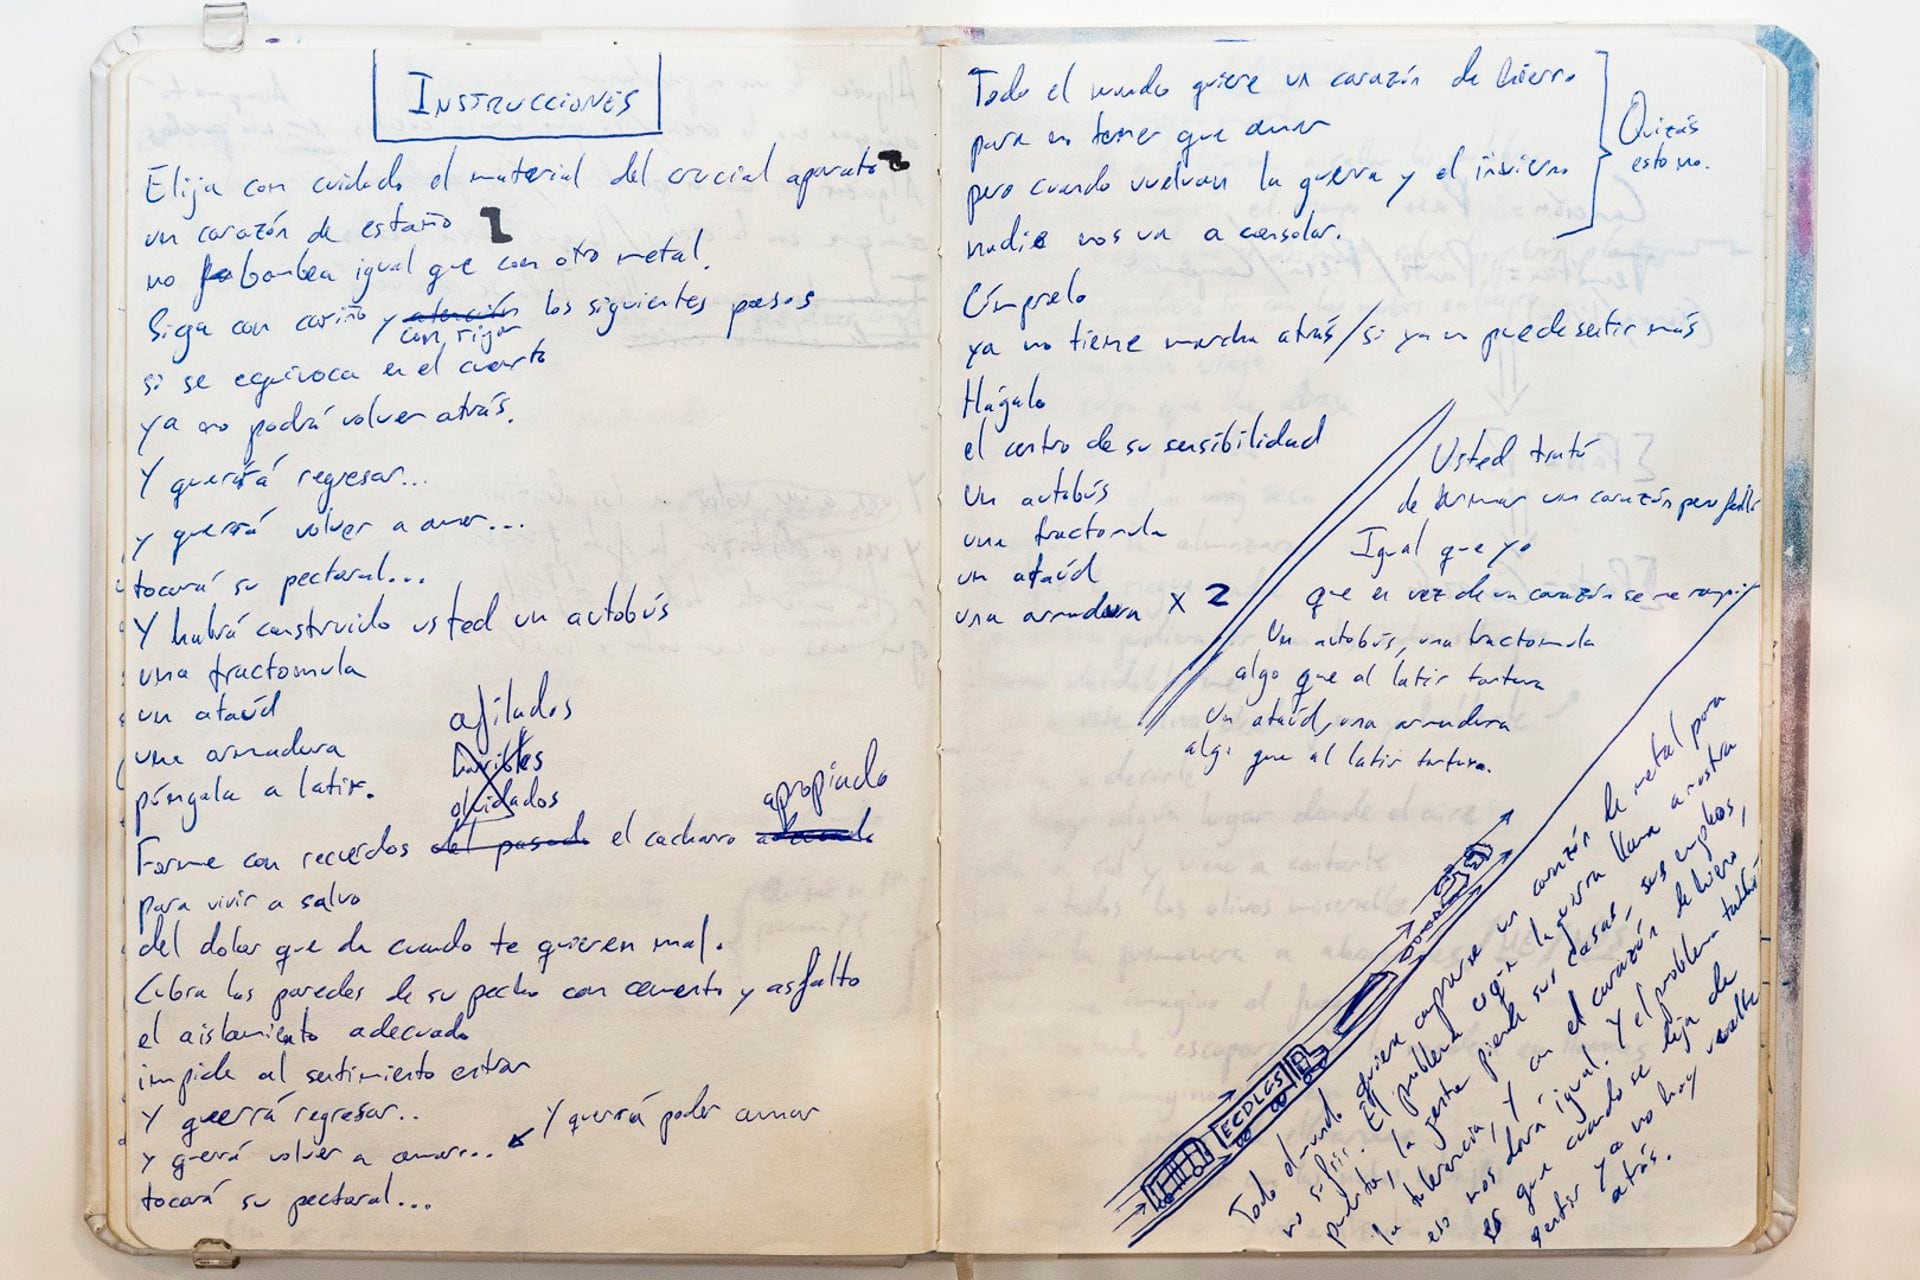 INSTRUCCIONES
Elija con cuidado el material del crucial aparato
un corazón de estaño
no bombea igual que con otro metal.
Siga con cariño y atención los siguientes pasos
con rigor
si se equivoca en el cuarto
ya no podrá volver atrás.
Y querrá regresar...
y querrá volver a amar...
tocará su pectoral...
Y habrá construido usted un autobús
una tractomula
un ataúd
una armadura
póngala a latir.
afilados
horribles
olvidados
apropiado
Forme con recuerdos del pasado el cacharro adecuado
para vivir a salvo
del dolor que da cuando te quieren mal.
Cubra las paredes de su pecho con cemento y asfalto
el aislamiento adecuado
impide al sentimiento entrar
Y querrá regresar..
Y querrá poder amar
y querrá volver a amar...
tocará su pectoral...
Todo el mundo quiere un corazón de hierro
para no tener que amar
pero cuando vuelvan la guerra y el invierno
nadie nos va a consolar.
Quizás
esto no.
Cómprelo
ya no tiene marcha atrás / si ya no puede sentir más
Hágalo
el centro de su sensibilidad
Un autobús
una tractomula
un ataúd
una armadura x 2
Usted trató
de armar un corazón pero falló
Igual que yo
que en vez de un corazón se me rompió
Un autobús, una tractomula
algo que al latir tortura
Un ataúd, una armadura
algo que al latir tortura.
ECOLAS
Todo el mundo quiere comprarse un corazón de metal para
no sufrir. El problema es que la guerra llama a nuestra
puerta, la gente pierde sus casas, sus empleos,
la tolerancia, y con el corazón de hierro
eso nos dará igual. Y el problema también
es que cuando se deja de
sentir ya no hay vuelta
atrás.